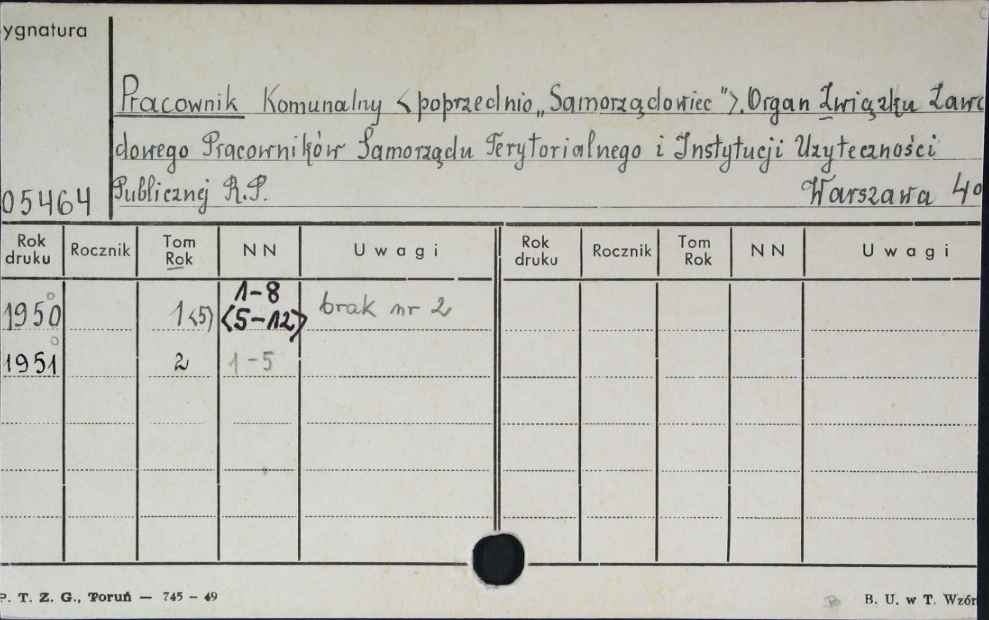 ygnatura
Pracownik Komunalny <poprzednio „Samorządowiec”>. Organ Związku Zawo
dowego Pracowników Samorządu Terytorialnego i Instytucji Użyteczności
05464 Publicznej R.P. Warszawa 4o
Rok druku Rocznik Tom Rok NN Uwagi Rok druku Rocznik Tom Rok NN Uwagi
1950 1<5> 1-8 <5-12> brak nr 2
1951 2 1-5
P. T. Z. G., Toruń — 745 – 49 B. U. w T. Wzór